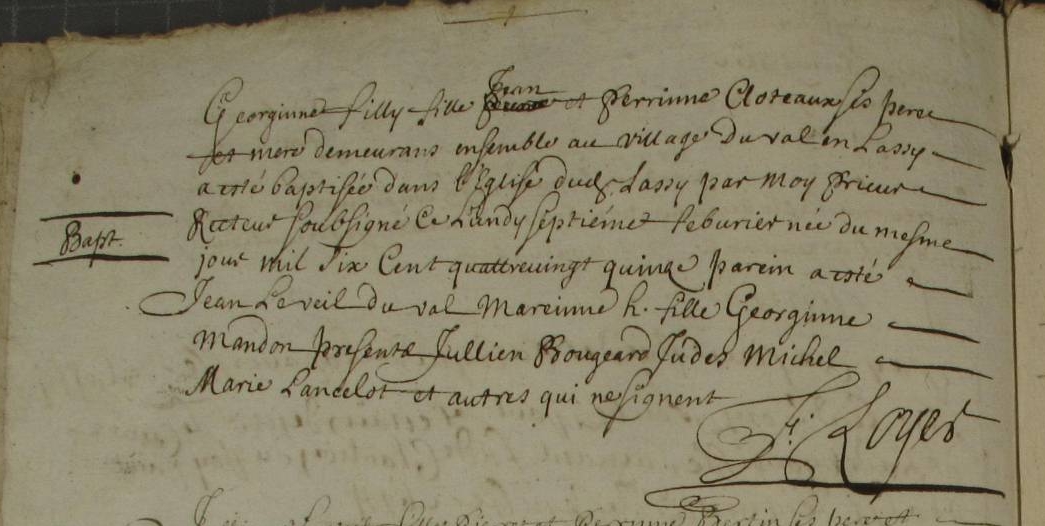 Georginne filly fille Jean et Perrinne Cloteaux ses pere
et mere demeurans ensemble au village Du val en Lassy
a esté baptisée dans l'Eglise dud Lassy par Moy Prieur
Recteur soubsigné Ce Lundy septiéme feburier née du mesme
Bapt.
jour mil six Cent quattrevingt quinze parein a esté
Jean Leveil du val Mareinne h. fille Georginne
Mandon presents Jullien Bougeard Judes Michel
Marie Lancelot et autres qui ne signent
Loyer
et Perrinne Bertin ses pere et